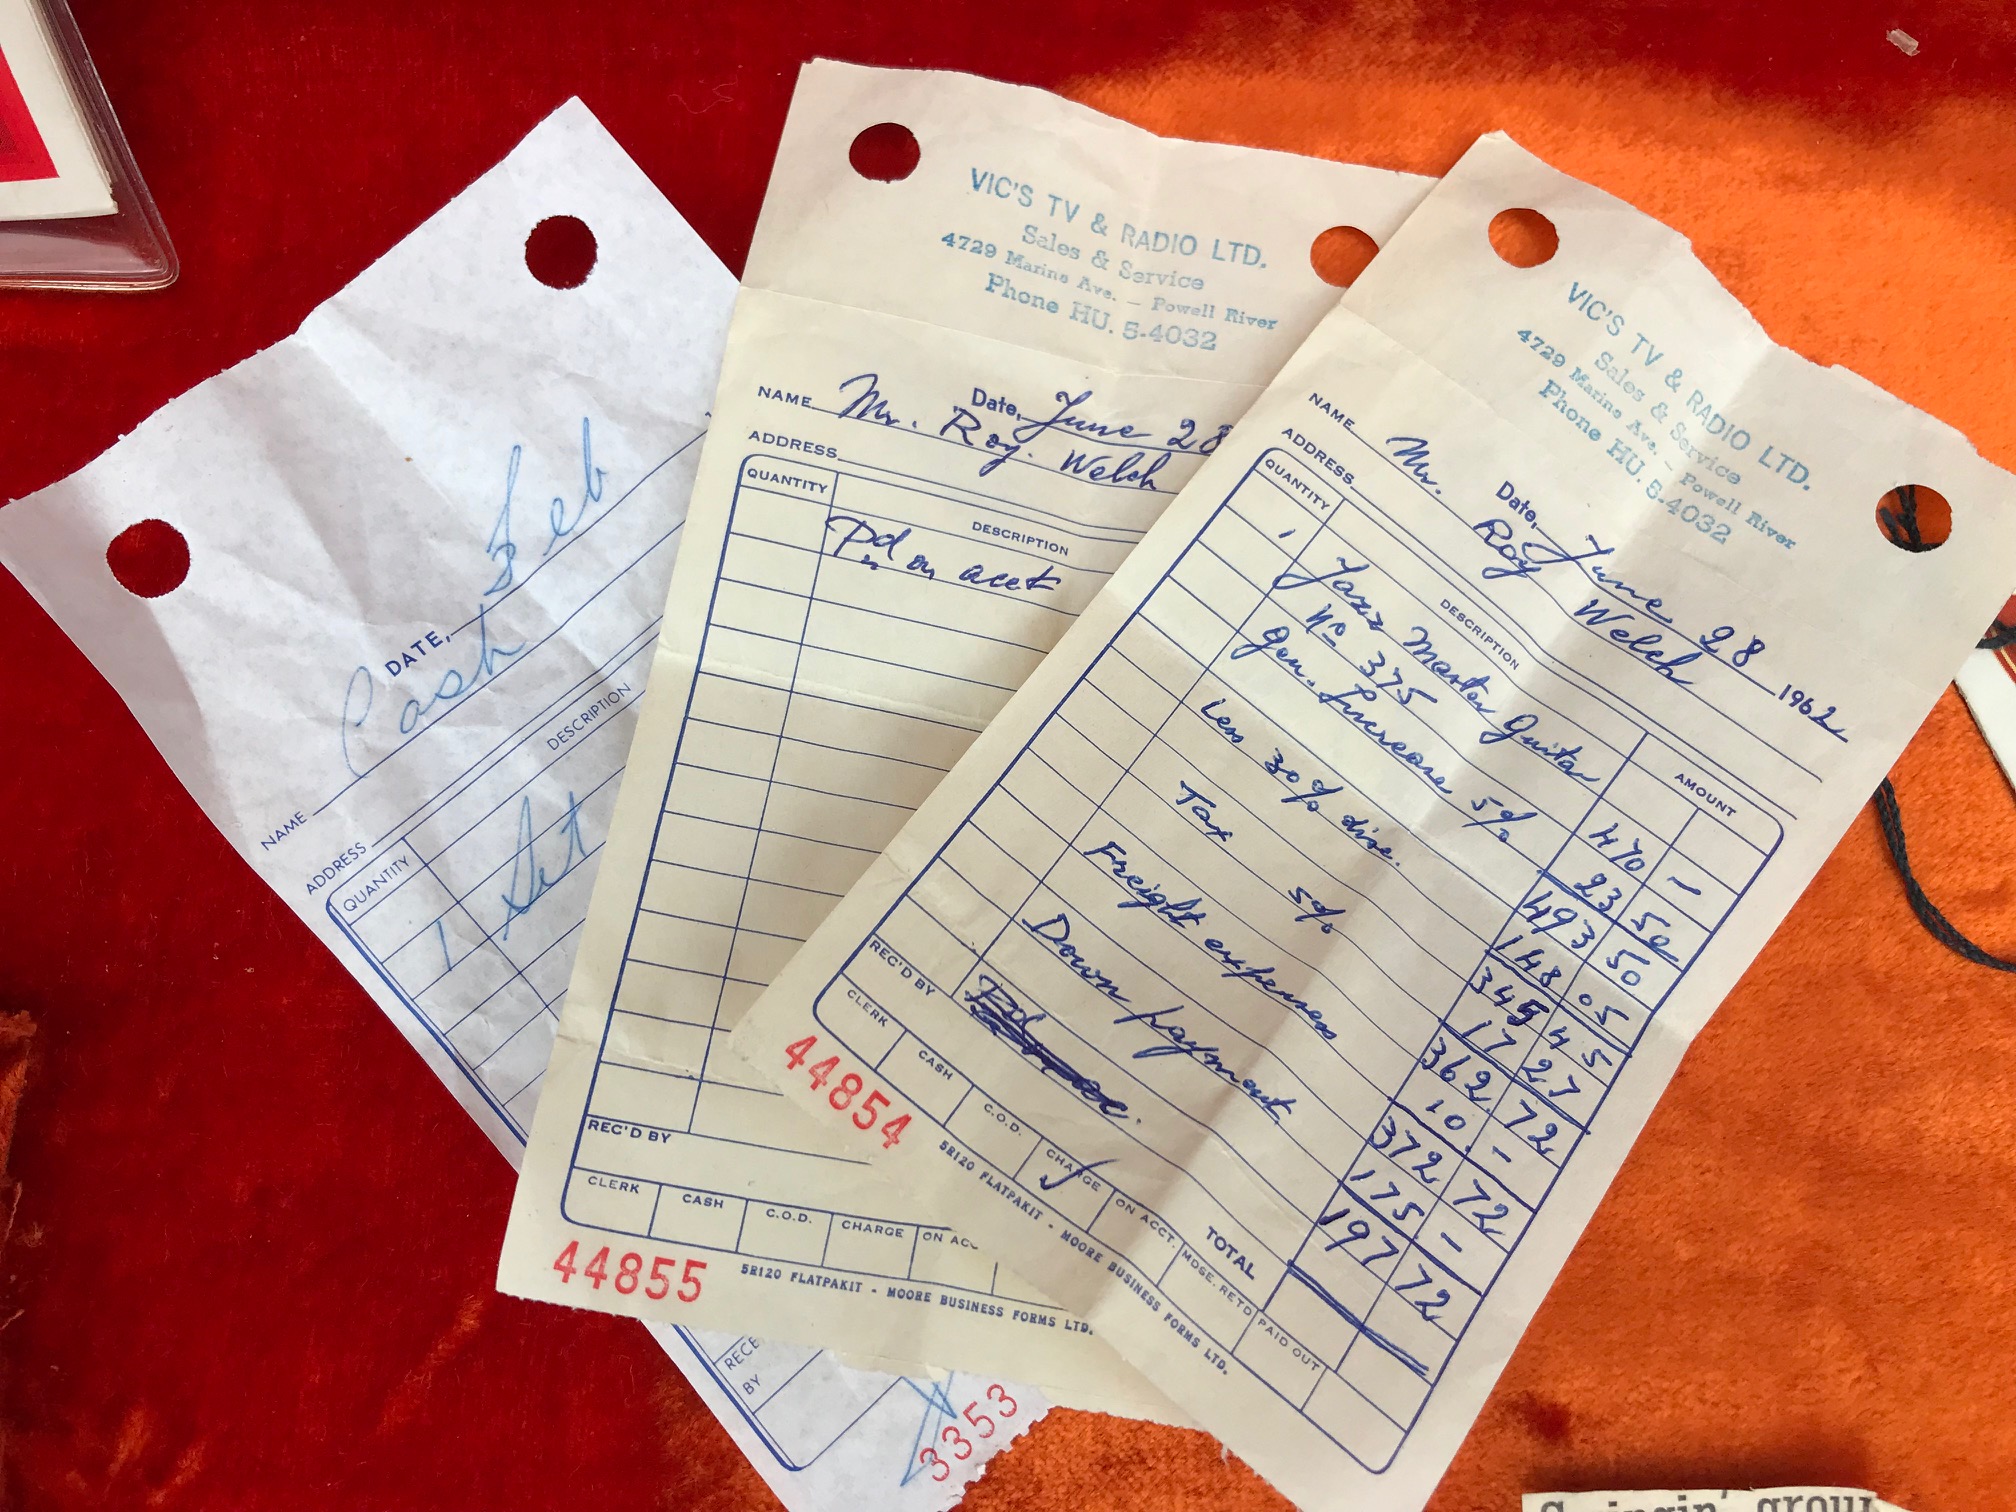 DATE, Feb
NAME Cash
ADDRESS
QUANTITY DESCRIPTION
1 Set
BY
3353
VIC'S TV & RADIO LTD.
Sales & Service
4729 Marine Ave. — Powell River
Phone HU. 5-4032
Date, June 28
NAME Mr. Roy. Welch
ADDRESS
QUANTITY DESCRIPTION
Pd on acct
REC'D BY
CLERK CASH C.O.D. CHARGE ON
44855 5R120 FLATPAKIT - MOORE BUSINESS FORMS LTD.
VIC'S TV & RADIO LTD.
Sales & Service
4729 Marine Ave. — Powell River
Phone HU. 5-4032
Date, June 28 1962
NAME Mr. Roy Welch
ADDRESS
QUANTITY DESCRIPTION AMOUNT
1 Jazz Master Guitar 470 —
No 375
Gen. Increase 5% 23 50
493 50
Less 30% disc. 148 05
345 45
Tax 5% 17 27
362 72
Freight expenses 10 —
372 72
Down payment 175 —
TOTAL 197 72
REC'D BY
CLERK CASH C.O.D. CHARGE ON ACCT. MDSE. RETD PAID OUT
44854 5R120 FLATPAKIT - MOORE BUSINESS FORMS LTD.